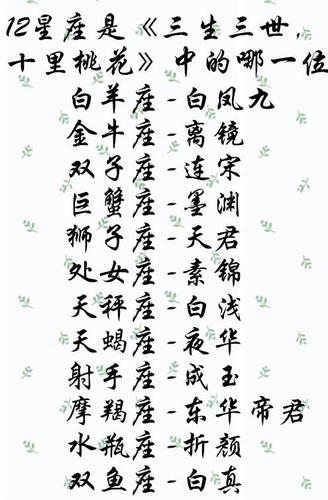 12星座是《三生三世,
十里桃花》中的哪一位
白羊座-白凤九
金牛座-离镜
双子座-连宋
巨蟹座-墨渊
狮子座-天君
处女座-素锦
天秤座-白浅
天蝎座-夜华
射手座-成玉
摩羯座-东华帝君
水瓶座-折颜
双鱼座-白真